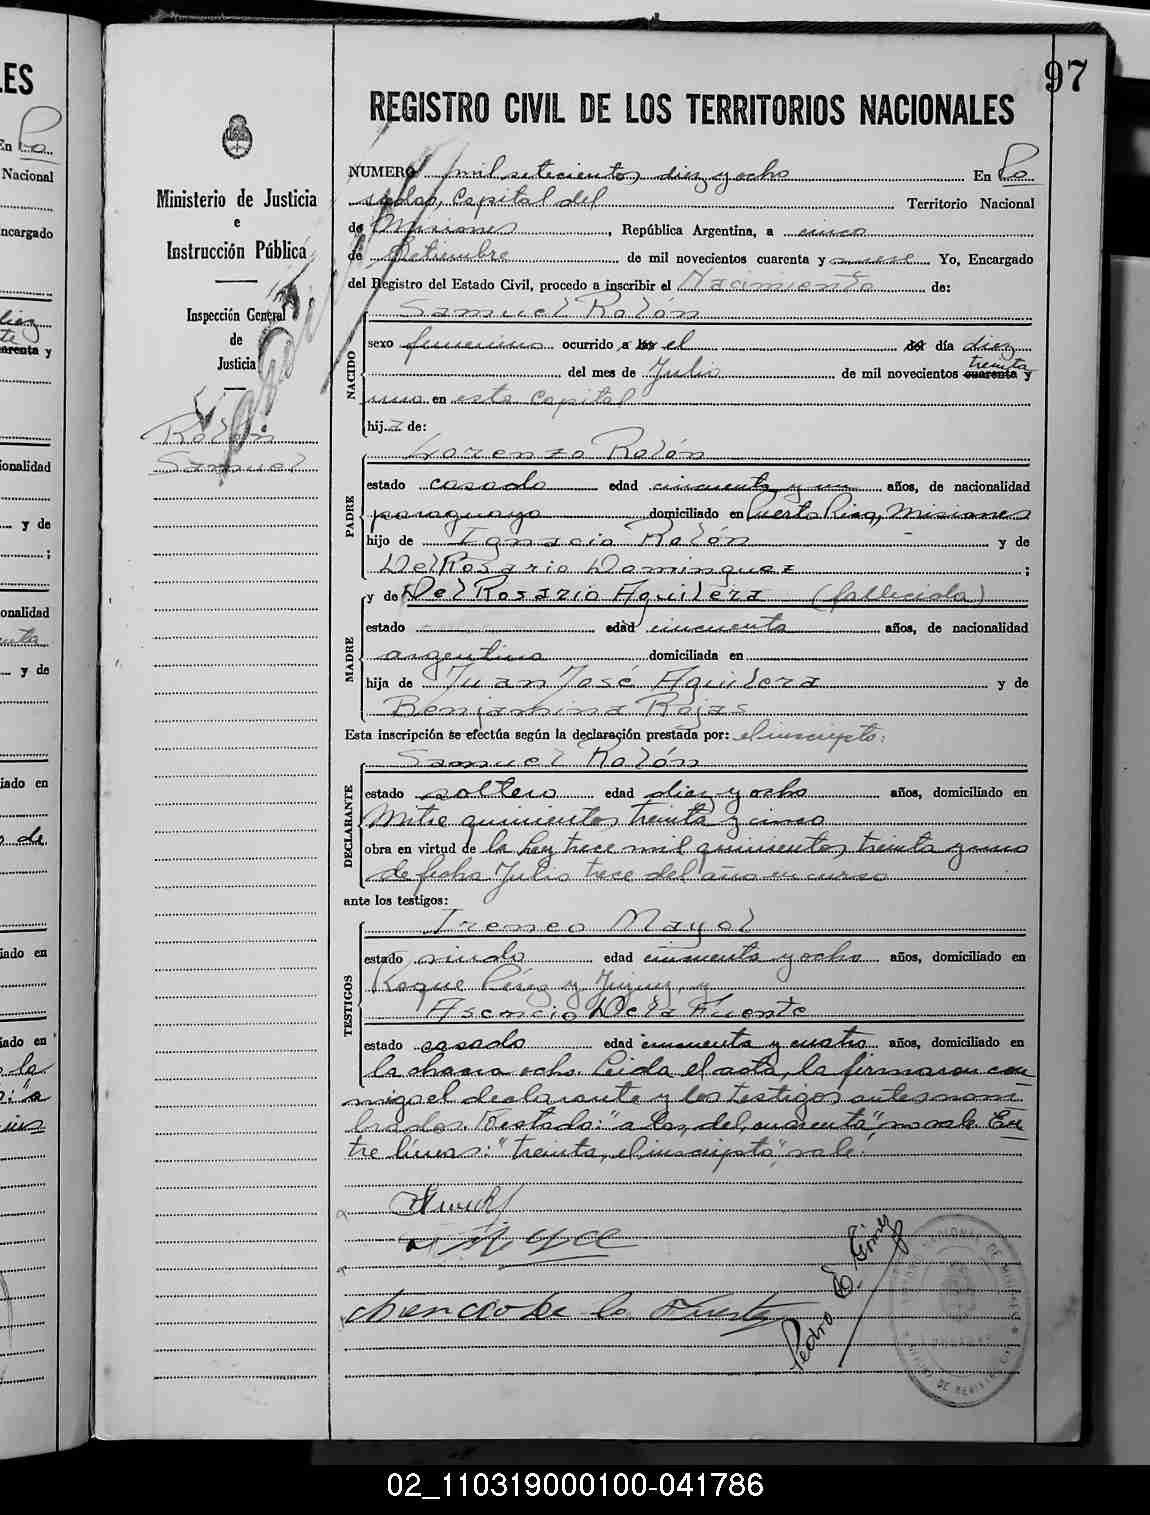 97
REGISTRO CIVIL DE LOS TERRITORIOS NACIONALES
Ministerio de Justicia
e
Instrucción Pública
Inspección General
de
Justicia
Rolón
Samuel
NUMERO mil setecientos diez y ocho En Po
sadas, Capital del Territorio Nacional
de Misiones, República Argentina, a cinco
de Setiembre de mil novecientos cuarenta y nueve Yo, Encargado
del Registro del Estado Civil, procedo a inscribir el Nacimiento de:
NACIDO
Samuel Rolón
sexo femenino ocurrido a las el del día diez
treinta
del mes de Julio de mil novecientos cuarenta y
uno en esta Capital
hija de:
PADRE
Lorenzo Rolón
estado casado edad cincuenta y un años, de nacionalidad
paraguayo domiciliado en Puerto Rico, Misiones
hijo de Ignacio Rolón y de
Del Rosario Dominguez ;
MADRE
y de Del Rosario Aguilera (fallecida)
estado edad cincuenta años, de nacionalidad
argentina domiciliada en
hija de Juan José Aguilera y de
Benjamina Rojas
Esta inscripción se efectúa según la declaración prestada por: el inscripto:
DECLARANTE
Samuel Rolón
estado soltero edad diez y ocho años, domiciliado en
Mitre quinientos treinta y cinco
obra en virtud de la Ley trece mil quinientos treinta y uno
de fecha Julio trece del año en curso
ante los testigos:
TESTIGOS
Ireneo Mayol
estado viudo edad cincuenta y ocho años, domiciliado en
Roque Pérez y Jujuy, y
Asencio De la Fuente
estado casado edad cincuenta y cuatro años, domiciliado en
la chacra ocho. Leida el acta, la firmaron con
migo el declarante y los testigos antes nom
brados. Testado: "a las, del, cuarenta", no vale. En
tre líneas: "treinta, el inscripto", vale.
Asencio De la Fuente
Pedro E. Giménez
02_110319000100-041786